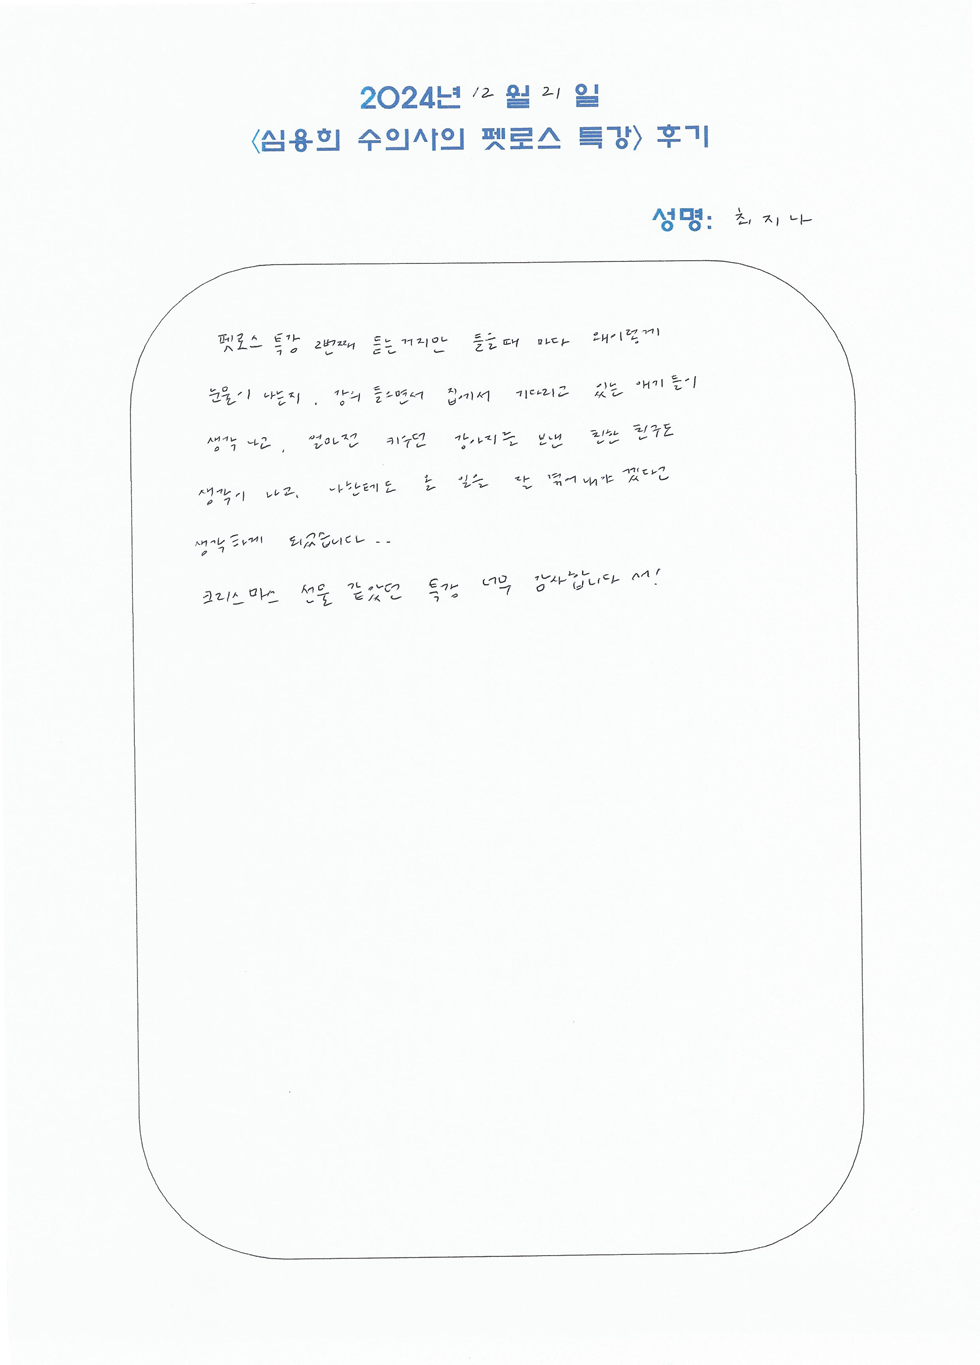 2024년 12월 21일
<심용희 수의사의 펫로스 특강> 후기
성명: 최지나
펫로스 특강 2번째 듣는거지만 들을때 마다 왜이렇게
눈물이 나는지. 강의 들으면서 집에서 기다리고 있는 애기들이
생각 나고, 얼마전 키우던 강아지를 보낸 친한 친구도
생각이 나고, 나한테도 올 일을 잘 겪어내야 겠다고
생각하게 되었습니다..
크리스마스 선물 같았던 특강 너무 감사합니다